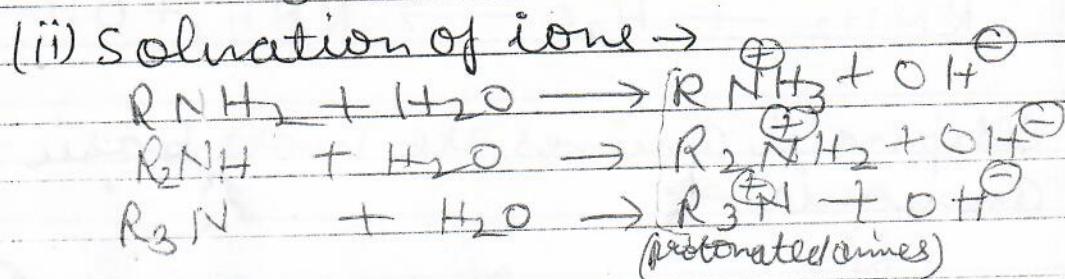 (ii) Solvation of ions →
RNH₂ + H₂O → RN⊕H₃ + OH⊖
R₂NH + H₂O → R₂N⊕H₂ + OH⊖
R₃N + H₂O → R₃N⊕ + OH⊖
(protonated amines)